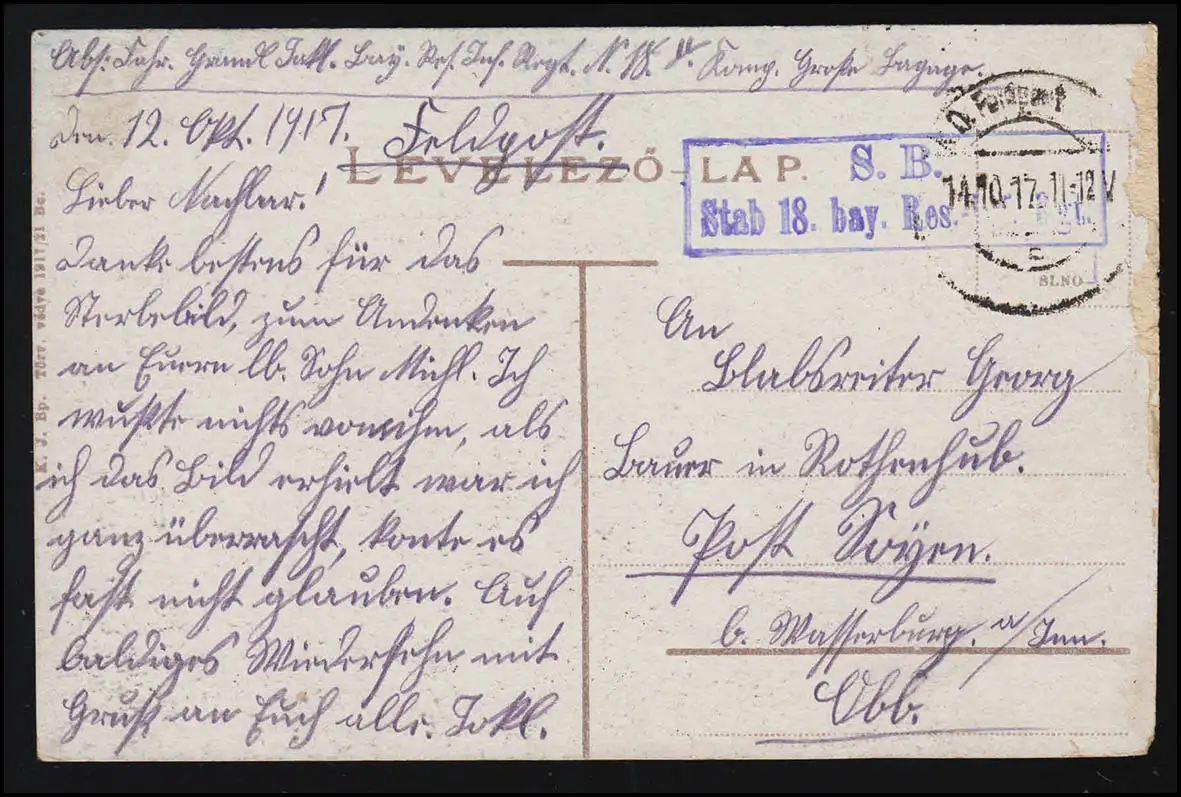 Abs: Fahr. Grandl Jakl. Bay. Res. Inf. Regt. N. 18. Komp. Große Bagage.
den 12. Okt. 1917.
Feldpost.
LEVELEZŐ-LAP.
S. B.
Stab 18. bay. Res.-
Feldpost
14.10.17. 11-12 V
SLNO
K. J. Bp. Törv. védve 1917/21 Bc.
Lieber Nachbar!
Danke bestens für das
Sterbebild, zum Andenken
an Euern lb. Sohn Michl. Ich
wußte nichts von ihm, als
ich das Bild erhielt war ich
ganz überrascht, konte es
fast nicht glauben. Auf
baldiges Wiedersehn mit
Gruß an Euch alle. Jakl.
An
Blabsreiter Georg
Bauer in Rothenhub.
Post Soyen.
b. Wasserburg. a/Inn.
Obb.